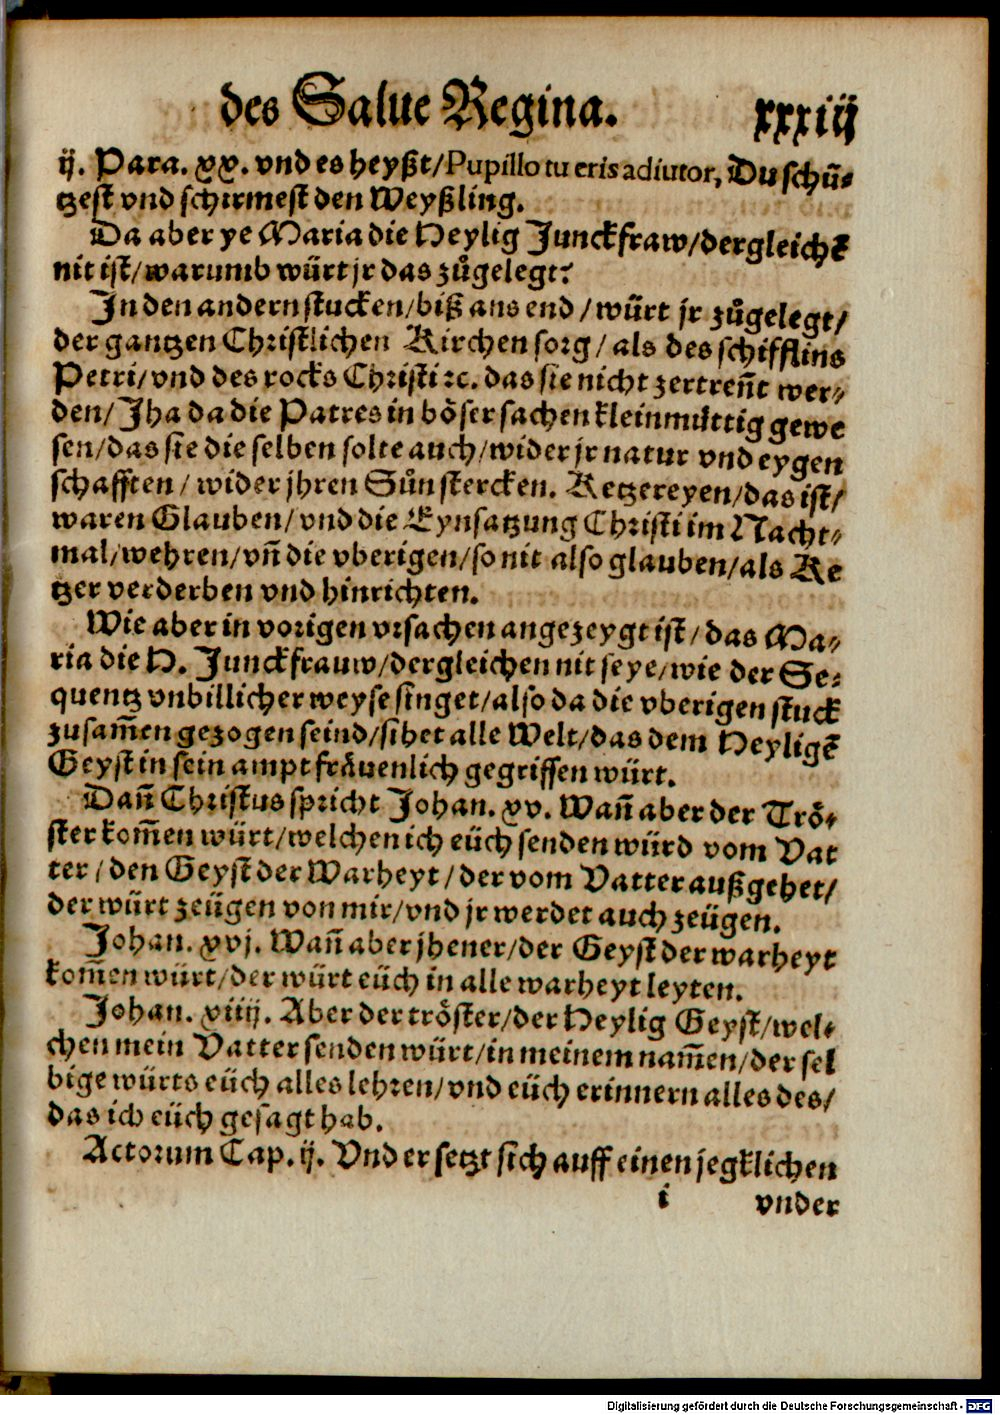 des Salue Regina. xxxiij
ij. Para. xx. vnd es heyßt/ Pupillo tu eris adiutor, Du schü-
tzest vnd schirmest den Weyßling.
Da aber ye Maria die Heylig Junckfraw/ dergleichē
nit ist/ warumb würt jr das zůgelegt?
In den andern stucken/ biß ans end/ würt jr zůgelegt/
der gantzen Christlichen Kirchen sorg/ als des schifflins
Petri/ vnd des rocks Christi ꝛc. das sie nicht zertreñt wer-
den/ Jha da die Patres in böser sachen kleinmüttig gewe
sen/ das sie die selben solte auch/ wider jr natur vnd eygen
schafften/ wider jhren Sůn stercken. Ketzereyen/ das ist/
waren Glauben/ vnd die Eynsatzung Christi im Nacht-
mal/ wehren/ vñ die vberigen/ so nit also glauben/ als Ke
tzer verderben vnd hinrichten.
Wie aber in vorigen vrsachen angezeygt ist/ das Ma-
ria die H. Junckfrauw/ dergleichen nit seye/ wie der Se-
quentz vnbillicher weyse singet/ also da die vberigen stuck
zusam̄en gezogen seind/ sihet alle Welt/ das dem Heyligē
Geyst in sein ampt fräuenlich gegriffen würt.
Dañ Christus spricht Johan. xv. Wañ aber der Trö-
ster kom̄en würt/ welchen ich eüch senden würd vom Vat
ter/ den Geyst der Warheyt/ der vom Vatter außgehet/
der würt zeügen von mir/ vnd jr werdet auch zeügen.
Johan. xvj. Wañ aber jhener/ der Geyst der warheyt
kom̄en würt/ der würt eüch in alle warheyt leyten.
Johan. xiiij. Aber der tröster/ der Heylig Geyst/ wel-
chen mein Vatter senden würt/ in meinem nam̄en/ der sel
bige würts eüch alles lehren/ vnd eüch erinnern alles des/
das ich eüch gesagt hab.
Actorum Cap. ij. Vnd er setzt sich auff einen jegklichen
i vnder
Digitalisierung gefördert durch die Deutsche Forschungsgemeinschaft - DFG